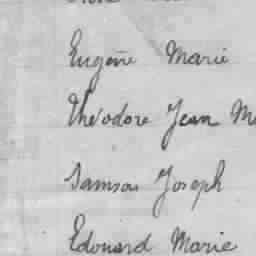 Eugène Marie
Théodore Jean
Samson Joseph
Edouard Marie